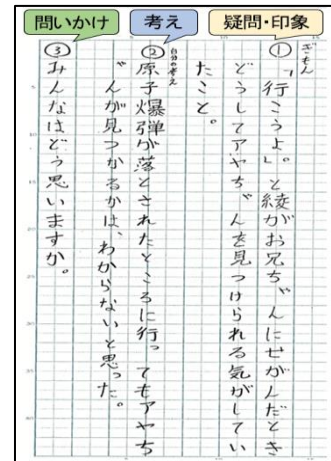 問いかけ
考え
疑問・印象
ぎもん
①「行こうよ。」と綾がお兄ちゃんにせがんだとき
どうしてアヤちゃんを見つけられる気がしてい
たこと。
自分の考え
②原子爆弾が落とされたところに行ってもアヤち
ゃんが見つかるかは、わからないと思った。
③みんなはどう思いますか。